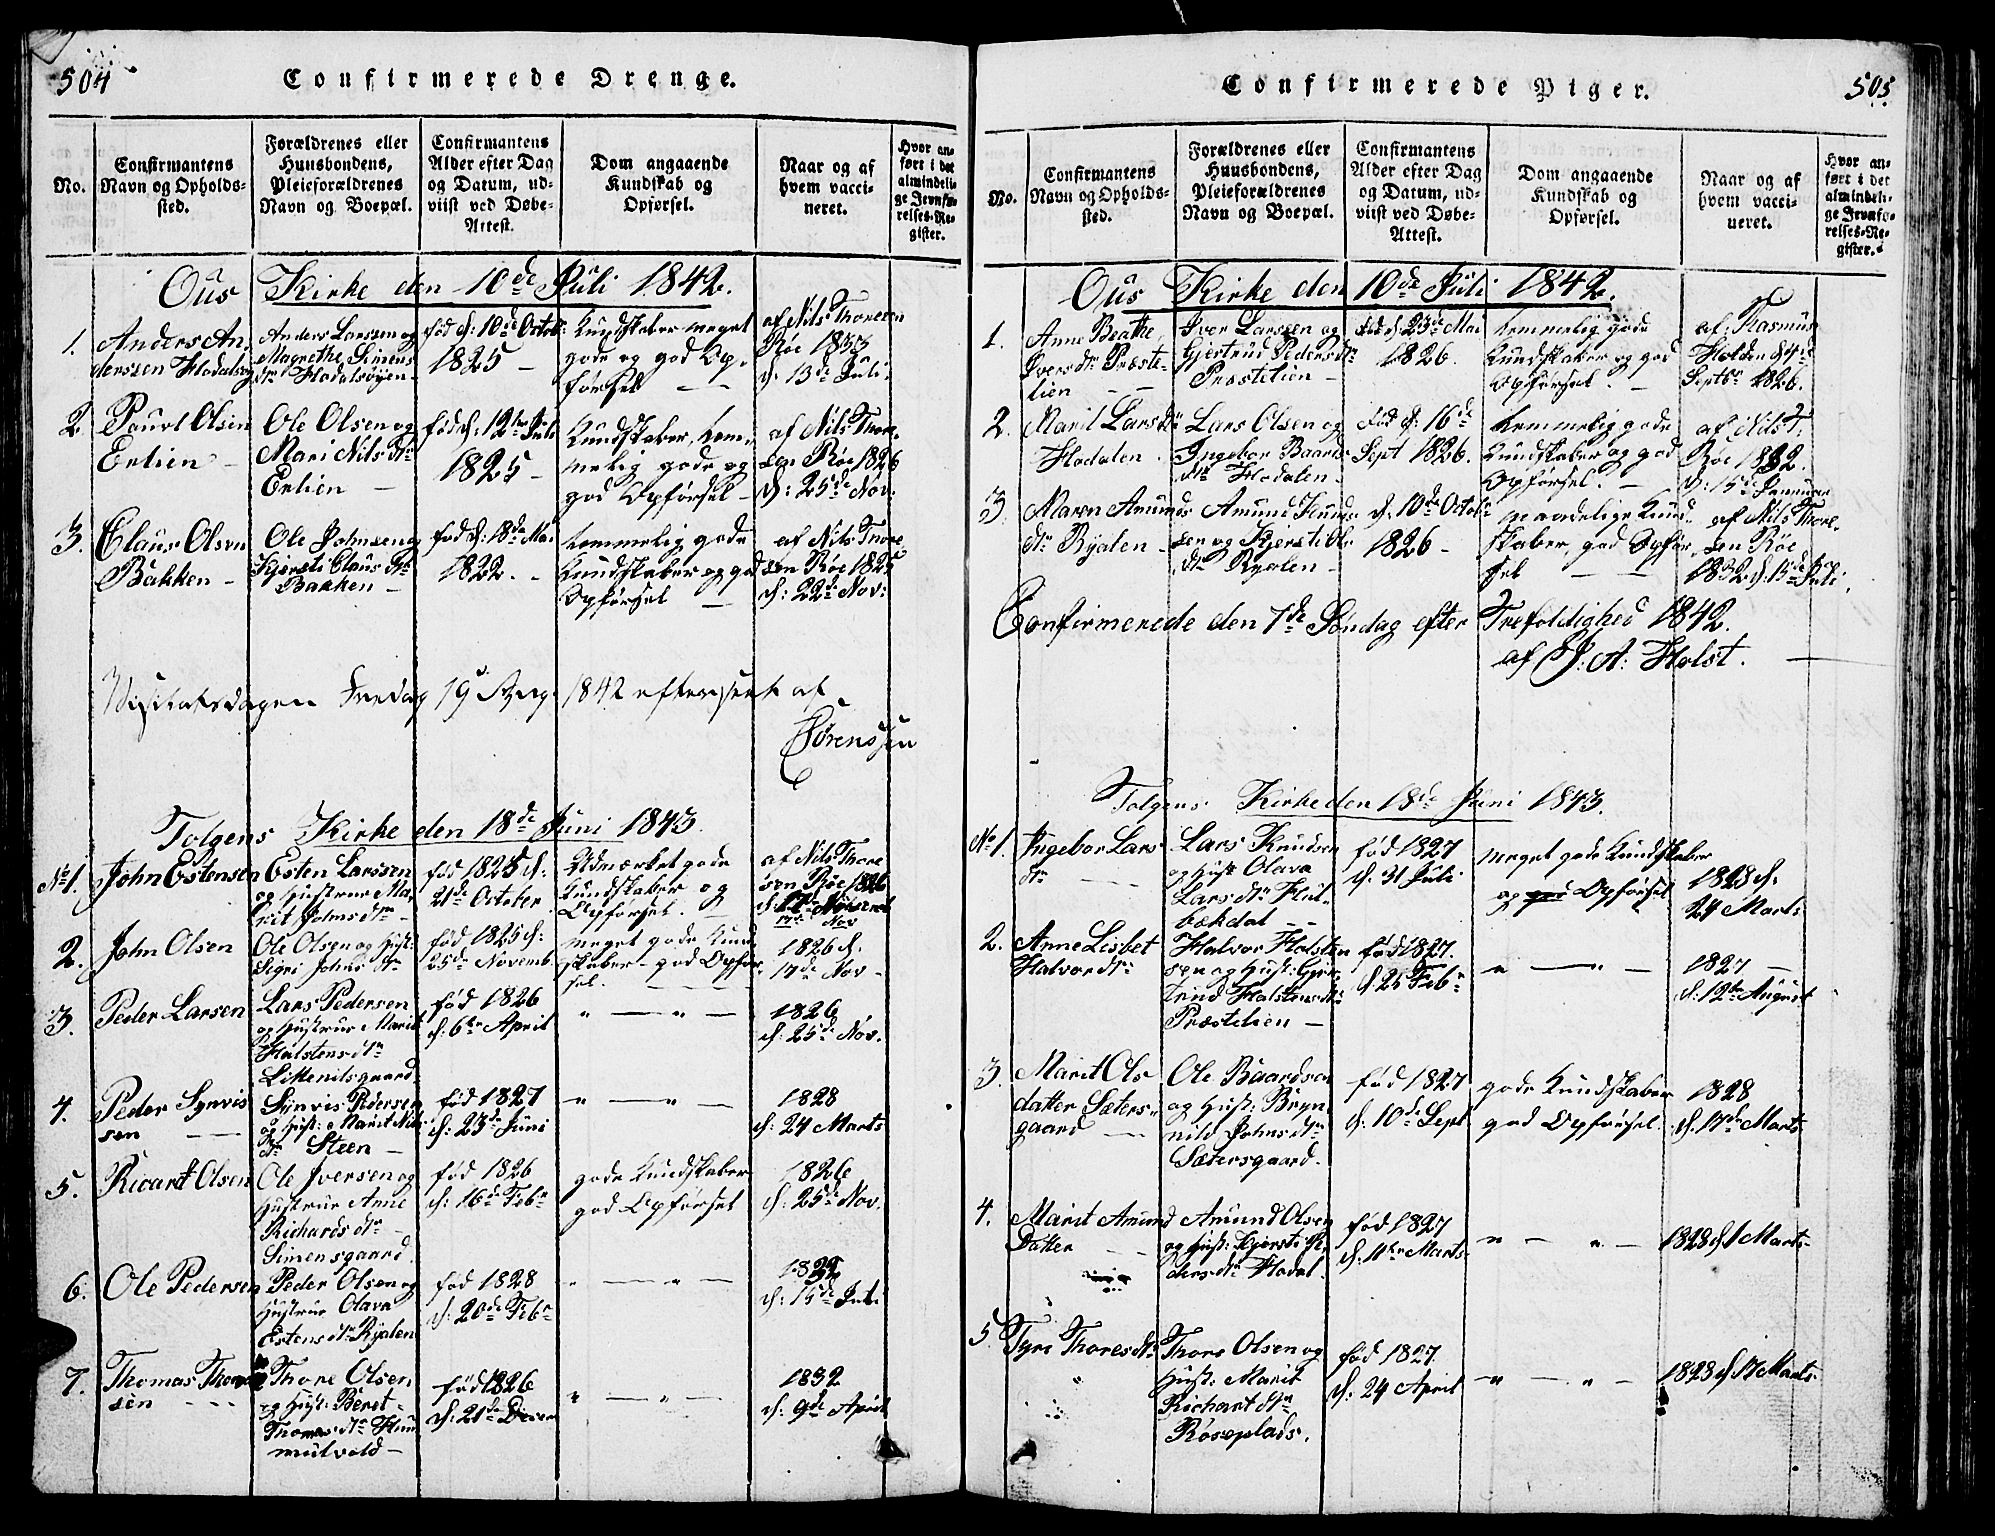 504
Confirmerede Drenge.
No.
Confirmantens
Navn og Opholds-
sted.
Forældrenes eller
Huusbondens,
Pleieforældrenes
Navn og Boepæl.
Confirmantens
Alder efter Dag
og Datum, ud-
viist ved Døbe-
Attest.
Dom angaaende
Kundskab og
Opførsel.
Naar og af
hvem vacci-
neret.
Hvor an-
ført i det
almindeli-
ge Jevnfø-
relses-Re-
gister.
Ous Kirke den 10de Juli 1842.
1.
Anders An
derssen Hodalsøy
Anders Larssen og
Magrethe
dtr Hodalsøyen
fød d: 10de Octob:
1825 –
Kundskaber meget
gode og god Op-
førsel – –
af Nils Thoresen
Røe 1833
d: 13de Juli
2.
Pouel Olsen
Erlien –
Ole Olsen og
Mari Nils dtr
Erlien –
fød d: 12te Juli
1825 –
Kundskaber tem-
melig gode og
god Opførsel –
af Nils Thore-
sen Røe 1826
d: 25de Nov:
3.
Claus Olsen
Bakken –
Ole Johnsen og
Kjersti Claus dtr
Bakken –
fød d: 18de Mai
1822. –
temmelig gode
Kundskaber og god
Opførsel –
af Nils Thore-
sen Røe 1825
d: 22de Nov:
Visitatsdagen Fredag 19 Aug. 1842 efterseet af
Sørenssen
Tolgens Kirke den 18de Juni 1843.
No 1.
John Estensen
Esten Larssen
og Hustrue Ma-
rit Johns dtr –
fød 1825 d:
21de October
Udmærket gode
Kundskaber og
Opførsel. –
af Nils Thore
sen Røe 1826
17de Nov
2.
John Olsen
Ole Olsen og Hust:
Sigri Johns dtr
fød 1825 d:
25de Novemb
meget gode Kund
skaber – god Opfør-
sel.
1826 d.
17de Nov –
3.
Peder Larsen
Lars Pedersen
og Hustrue Marit
Halstens dtr
Littenilsgaard
fød 1826
d: 6te April
" — " —
1826
d: 25de Nov.
4.
Peder Synvis
sen — —
Synvis Pedersen
og Hust: Marit Nils
dtr Steen –
fød 1827
d: 23de Juni
" — " —
1828
d: 24 Marts
5.
Ricart Olsen
Ole Iversen og
Hustrue Anne
Richards dtr –
Simensgaard
fød 1826
d: 16de Febr
gode Kundskaber
god Opførsel
1826
d: 25de Nov.
6.
Ole Pedersen
Peder Olsen og
Hustrue Olava
Estens dtr Ryalen
fød 1828
d: 20de Febr
" — " —
d: 15de Juli
7.
Thomas Thore
sen – – –
Thore Olsen
og Hust: Beret –
Thomas dtr Hum
mulvold –
fød 1826
d: 21de Decem
" — " —
1832
d: 9de April
505
Confirmerede Piger.
No.
Confirmantens
Navn og Opholds-
sted.
Forældrenes eller
Huusbondens,
Pleieforældrenes
Navn og Boepæl.
Confirmantens
Alder efter Dag
og Datum, ud-
viist ved Døbe-
Attest.
Dom angaaende
Kundskab og
Opførsel.
Naar og af
hvem vacci-
neret.
Hvor an-
ført i det
almindeli-
ge Jevnfø-
relses-Re-
gister.
Ous Kirke den 10de Juli 1842.
1.
Anne Beathe
Ivers dtr Præste-
lien –
Iver Larssen og
Gjertrud Peders dtr
Præstelien –
fød d: 23de Mai
1826.
temmelig gode
Kundskaber og god
Opførsel. –
af Rasmus
Holden d 4de
Septbr 1826.
2.
Marit Lars dtr
Hodalen
Lars Olsen og
Ingebor Baards
dtr Hodalen –
fød d: 16de
Sept 1826.
temmelig gode
Kundskaber og god
Opførsel. –
af Nils T.
Røe 1832.
d: 15de Januar
3.
Maren Amunds
dtr Ryalen –
Amund Knud-
sen og Kjersti Ols
dtr Ryalen –
d: 10de Octobr
1826 –
maadelige Kund-
skaber god Opfør-
sel — —
af Nils Thore-
sen Røe
1832 d: 15de Juli.
Confirmerede den 7de Søndag efter Trefoldighed 1842.
af J: A: Holst. —
Tolgens Kirke den 18de Juni 1843.
No 1.
Ingebor Lars
dtr – – –
Lars Knudsen
og Hust Olava
Lars dtr
fød 1827
d. 31 Juli
meget gode Kundskaber
og Opførsel
1828 d.
24 Marts
2.
Anne Lisbet
Halvor dtr
Halvor Halsten
sen og Hust: Gjer-
trud Halstens dtr
Præstelien –
fød 1827.
d. 25 Febr
" — " —
1827 –
d: 12te August
3.
Marit Ols
datter Sæters-
gaard —
Ole Baardsen
og Hust: Bryn
nild Johns dtr
Sætersgaard.
fød 1827
d: 10de Sept
gode Kundskaber
god Opførsel
1828
d. 17de Marts
4.
Marit Amund
Datter – –
Amund Olsen
og Hust: Kjersti Pe
ders dtr Hodal.
fød 1827
d: 11te Marts
" — " —
1828 d 1 Marts
5
Tyri Thores dtr
Thore Olsen og
Hust: Marit
Richart dtr
Røseplads.
fød 1827.
d: 24 April
" — " —
1828 d 17 Marts